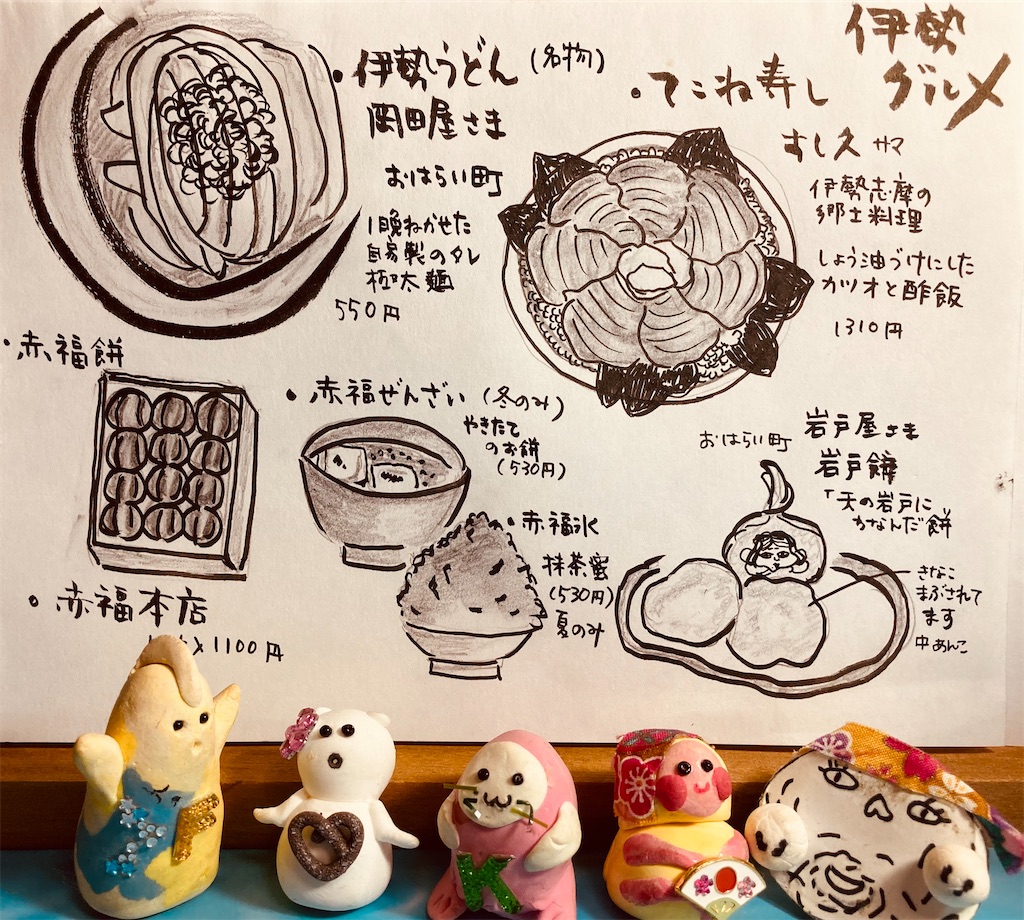 伊勢
グルメ
・伊勢うどん(名物)
岡田屋さま
おはらい町
1晩ねかせた
自家製のタレ
極太麺
550円
・てこね寿し
すし久 サマ
伊勢志摩の
郷土料理
しょう油づけにした
カツオと酢飯
1310円
・赤福餅
・赤福本店
1100円
・赤福ぜんざい(冬のみ)
やきたて
のお餅
(530円)
・赤福氷
抹茶蜜
(530円)
夏のみ
おはらい町
岩戸屋さま
岩戸餅
「天の岩戸に
かなんだ餅
きなこ
まぶされて
ます
中あんこ
F
K